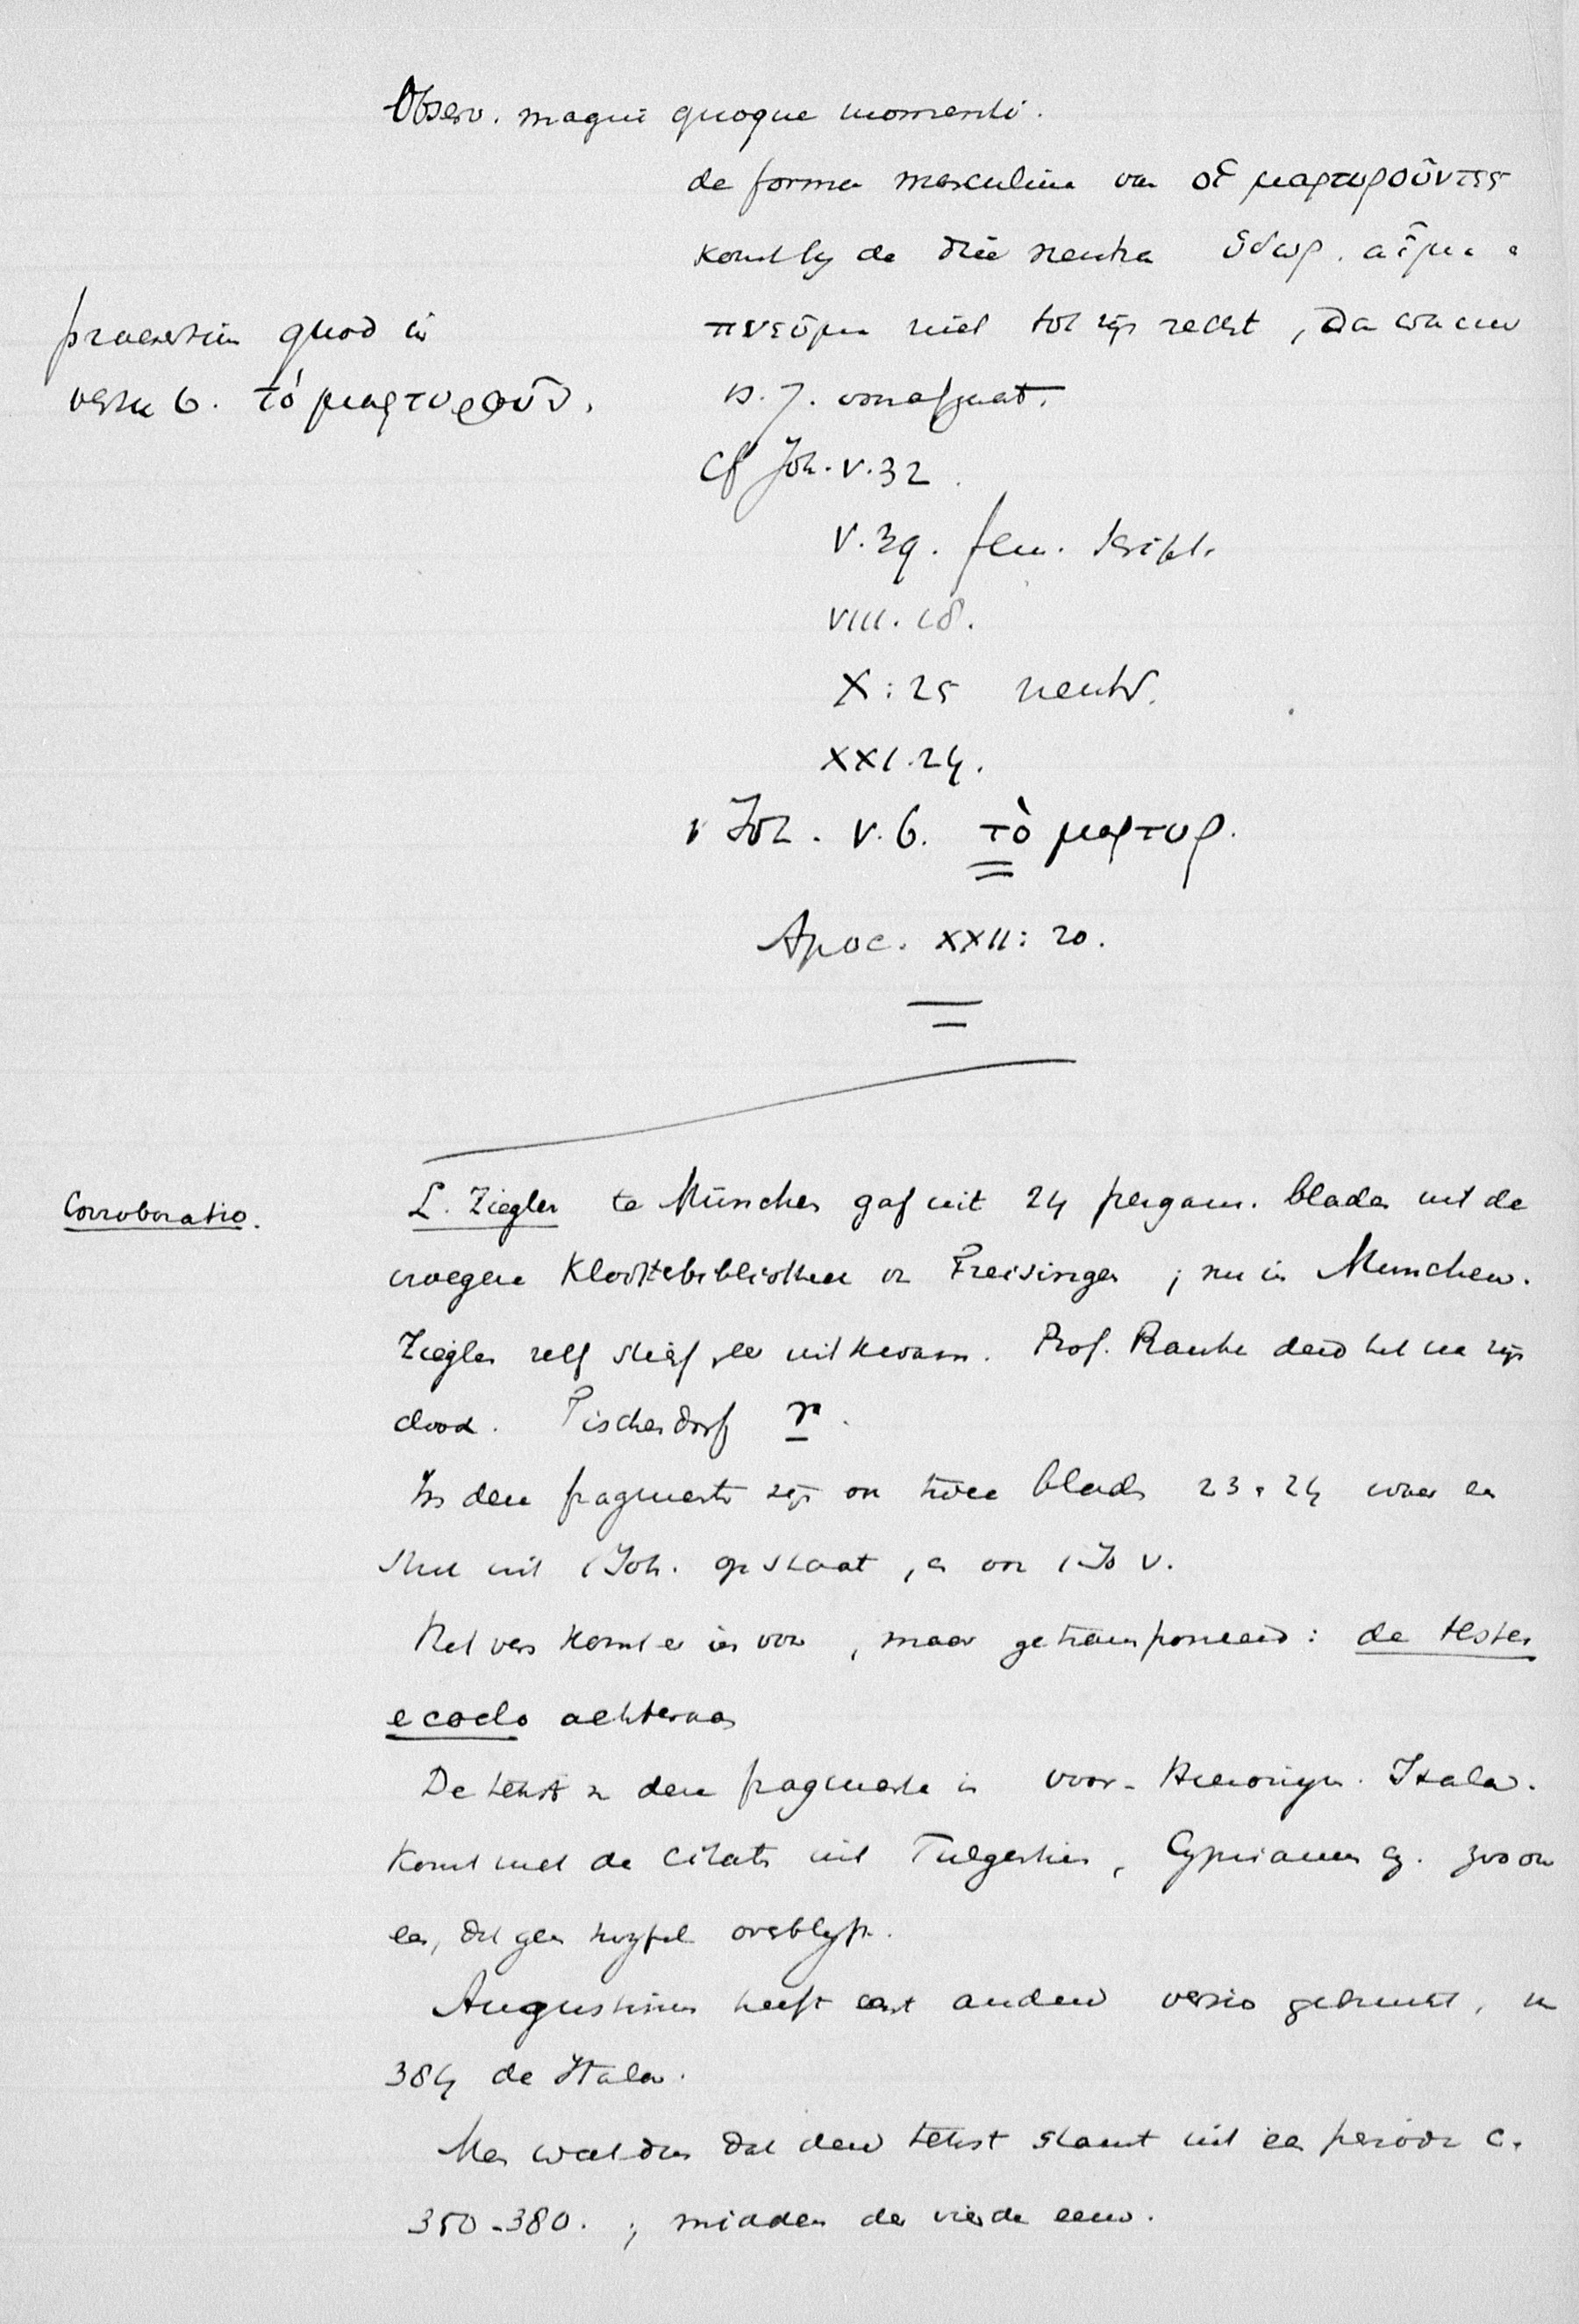 Observ. magni quoque momenti.
de forma masculina van οἱ μαρτυροῦντες
komt by de drie neutra ὕδωρ. αἷμα e
praesertim quod in
versu 6. τὸ μαρτυροῦν.
πνεῦμα niet tot zijn recht, da
vs. 7. voorafgaat.
Cf Joh. V. 32.
V. 39. fem. script.
VIII. 18.
X: 25 neutr.
XXI. 24.
1 Joh. V. 6. τὸ μαρτυρ.
Apoc. XXII: 20.
Corroboratio.
L. Ziegler te München gaf uit 24 pergam. bladen uit de
vroegere Kloosterbibliotheek v. Freisingen; nu in Munchen.
Ziegler zelf stierf eer uitkwam. Prof. Ranke deed het na zijn
dood. Tischendorf r.
In deze fragmenten zijn ook twee bladen 23 e 24 waar een
stuk uit 1 Joh. op staat, e ook 1 Jo V.
Het vers komt er in voor, maar getransponeerd: de testes
e coelo achteraan
De tekst v. deze fragmenten is voor-Hieronym. Itala.
Komt met de citaten uit Fulgentius, Cyprianus ez. zoo over
een, dat geen twyfel overblyft.
Augustinus heeft eerst andere versio gebruikt, na
384 de Itala.
Men wat dus dat deze tekst stamt uit een periode c.
350-380.; midden der vierde eeuw.